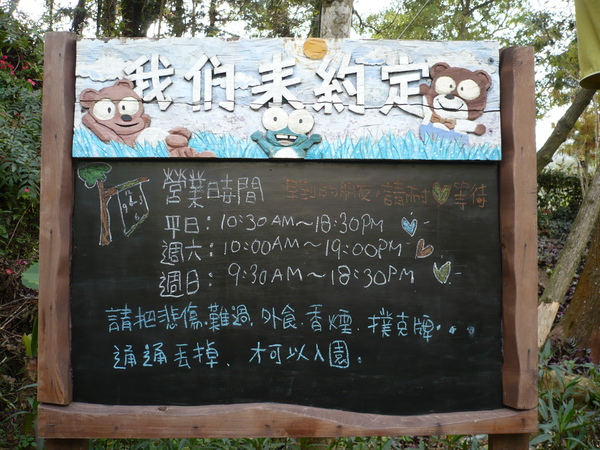 我们来約定
營業時間 早到的朋友,請耐♥等待
平日:10:30AM~18:30PM
週六:10:00AM~19:00PM
週日:9:30AM~18:30PM
請把悲傷.難過.外食.香煙.撲克牌...
通通丟掉.才可以入園。